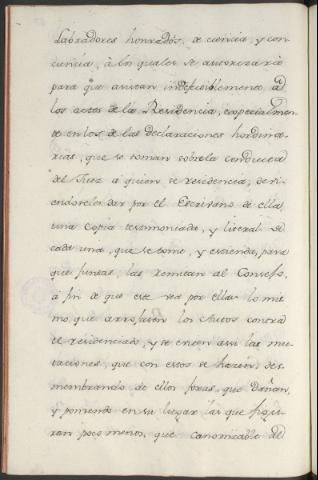 Labradores honrados, de ciencia, y con
ciencia, à los quales se autorizaria
para que asistan indefectiblemente à
los actos de la Residencia, especialmen
te en los de las declaraciones
que se toman sobre la conducta
del Juez à quien se residencia, de
dar por el Escrivano de ella
una Copia testimoniada, y literal de
cada una, que se tome, y estienda, para
que juntas, las remitan al Consejo,
à fin de que este vea por ellas lo mis
mo que arrojasen los Autos contra
el residenciado, y se eviten assi las mu
taciones, que con estos se hacen, des
membrando de ellos fojas, que dañan,
y poniendo en su lugar las que figu
ran poco menos, que canonizable del